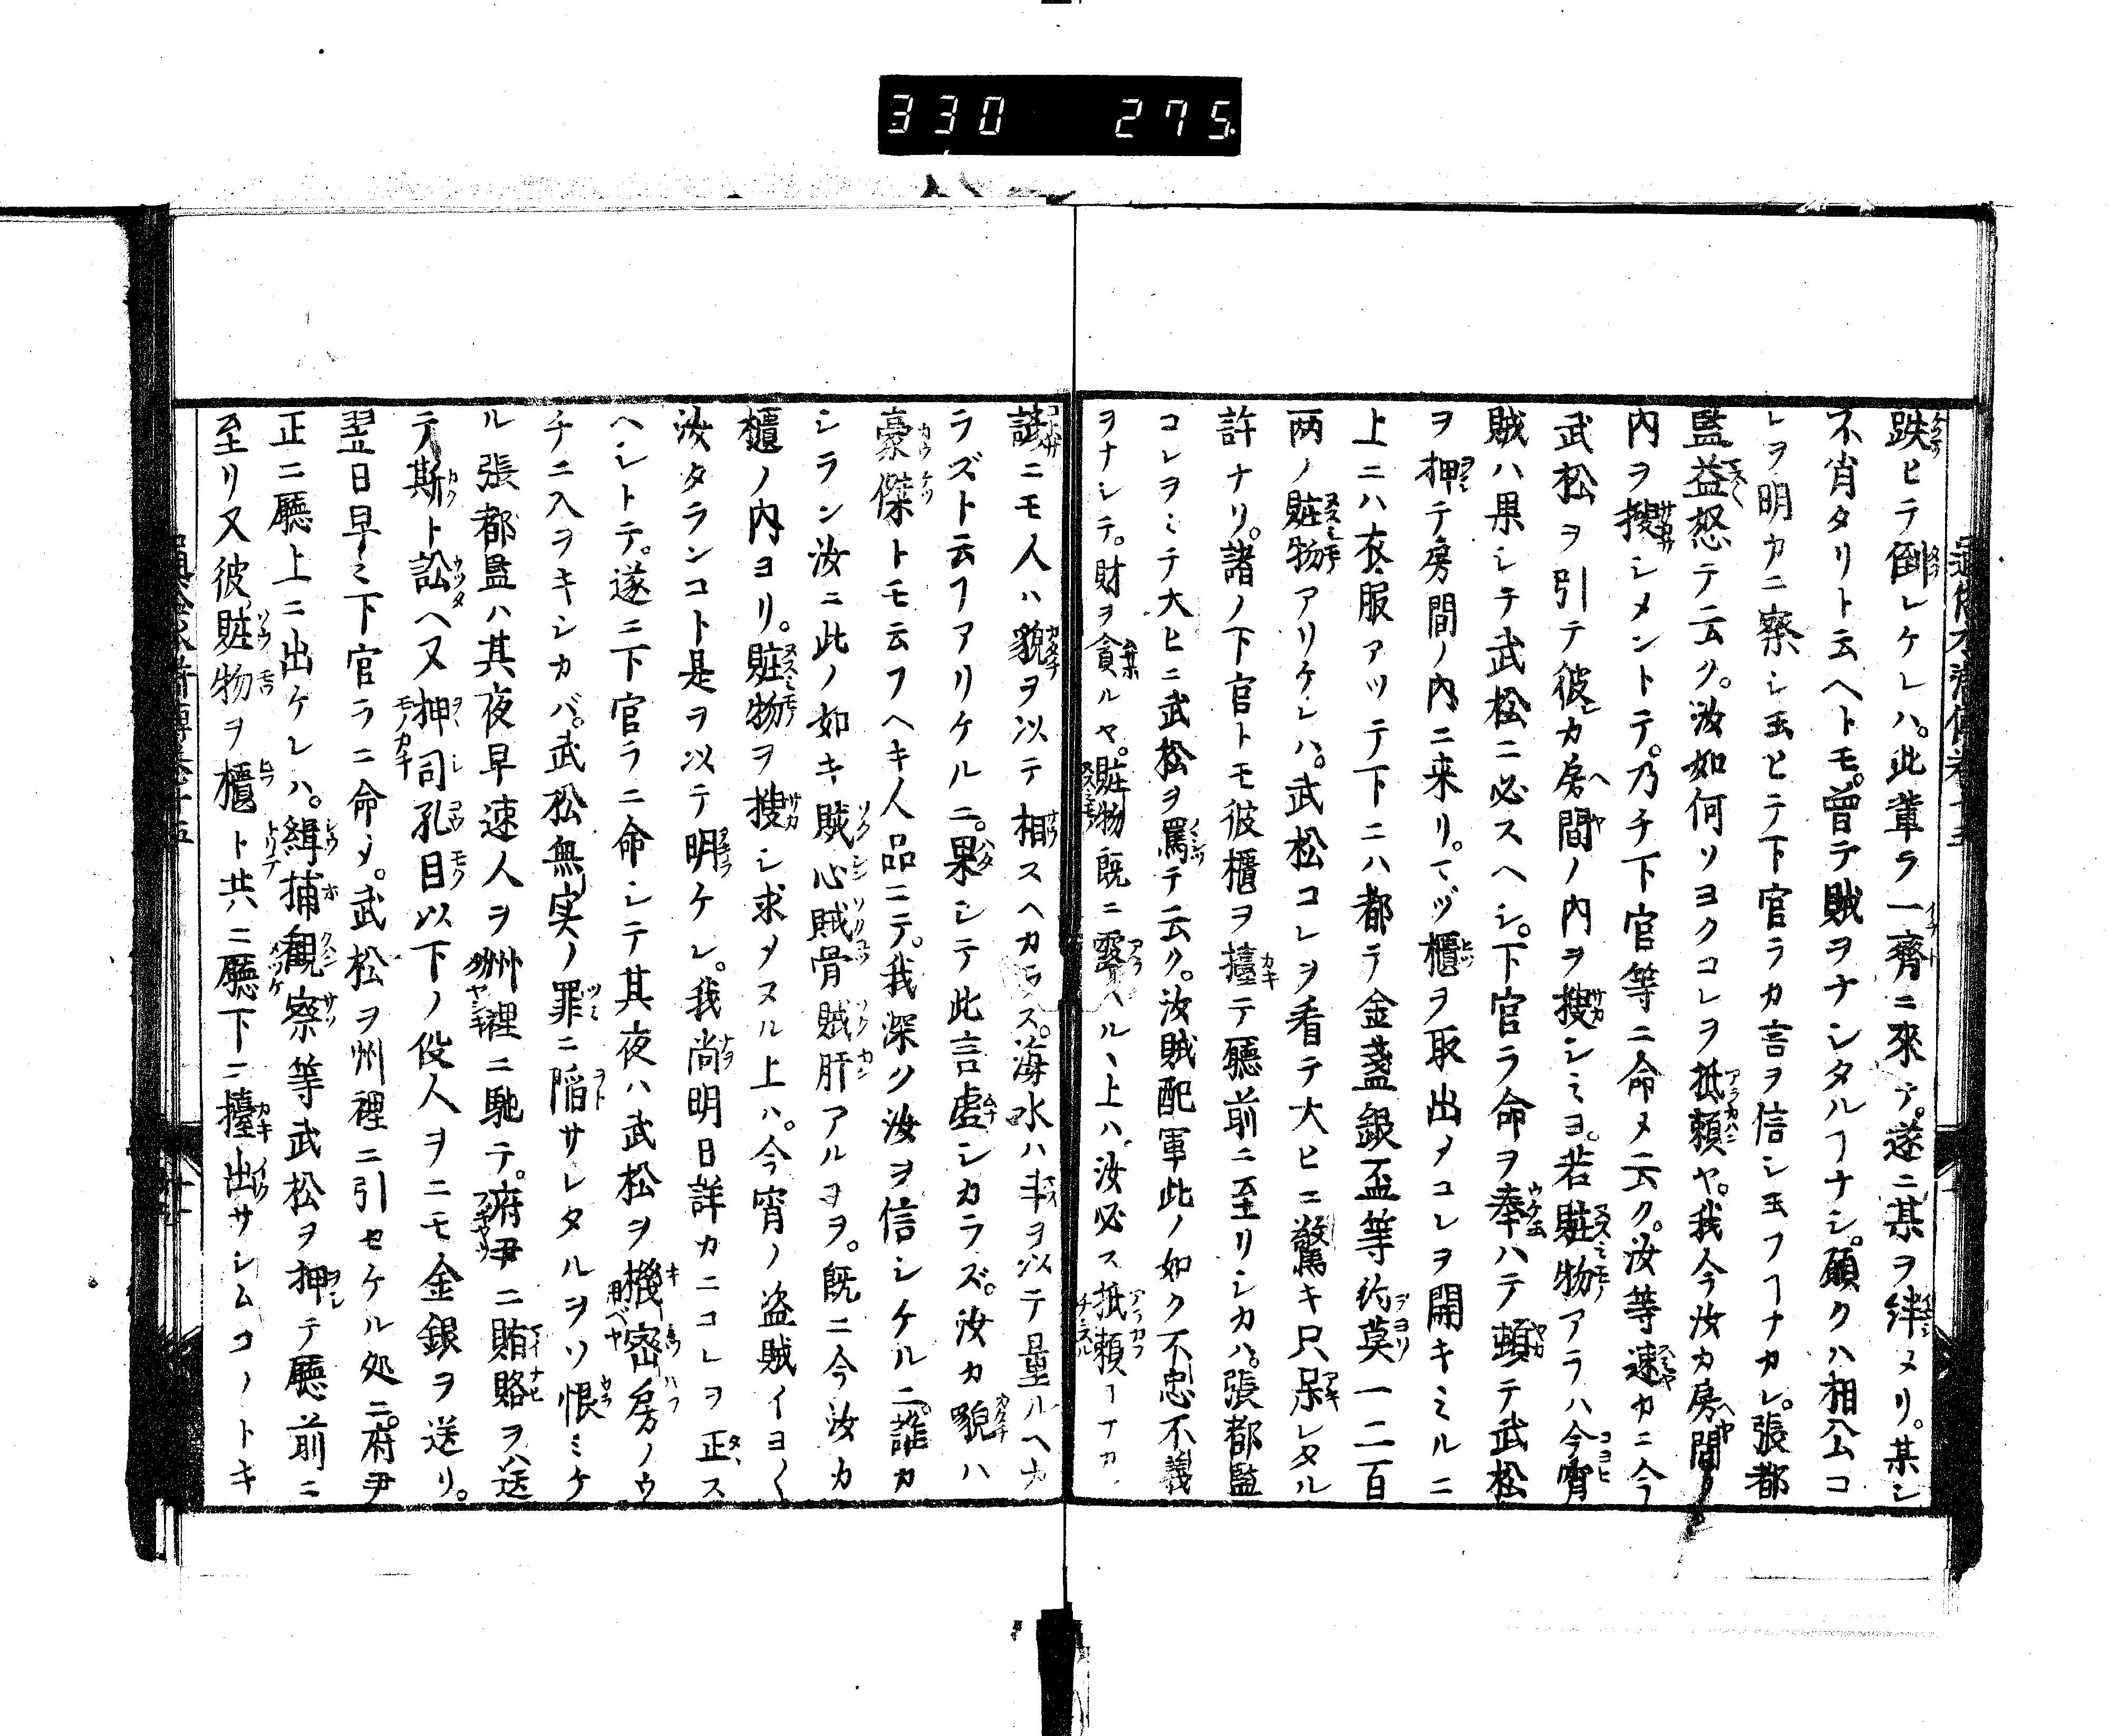 330 275
跌ヒテ倒レケレハ。此輩ラ一齊ニ來テ。遂ニ某ヲ絆メリ。某シ
不肖タリト云ヘトモ。曽テ賊ヲナシタルヿナシ。願クハ相公コ
レヲ明カニ察シ玉ヒテ下官ラカ言ヲ信シ玉フヿナカレ。張都
監益怒テ云ク。汝如何ソヨクコレヲ抵頼ヤ。我今汝カ房間ノ
内ヲ搜シメントテ。乃チ下官等ニ命メ云ク。汝等速カニ今
武松ヲ引テ彼カ房間ノ内ヲ搜シミヨ。若賍物アラハ今宵
賊ハ果シテ武松ニ必スヘシ。下官ラ命ヲ奉ハテ頓テ武松
ヲ押テ房間ノ内ニ来リ。マヅ櫃ヲ取出メコレヲ開キミルニ
上ニハ衣服アツテ下ニハ都テ金盞銀盃等約莫一二百
两ノ賍物アリケレハ。武松コレヲ看テ大ヒニ驚キ只呆レタル
許ナリ。諸ノ下官トモ彼櫃ヲ擡テ廳前ニ至リシカハ。張都監
コレヲミテ大ヒニ武松ヲ罵テ云ク。汝賊配軍此ノ如ク不忠不義
ヲナシテ。財ヲ貪ルヤ。賍物既ニ露ヘルヽ上ハ。汝必ス抵頼ヿナカ
諺ニモ人ハ貌ヲ以テ相スヘカラス。海水ハ斗ヲ以テ量ルヘカ
ラズト云フアリケルニ。果シテ此言虚シカラズ。汝カ貌ハ
豪傑トモ云フヘキ人品ニテ。我深ク汝ヲ信シケルニ。誰カ
シラン汝ニ此ノ如キ賊心賊骨賊肝アルヲヲ。既ニ今汝カ
櫃ノ内ヨリ。賍物ヲ搜シ求メヌル上ハ。今宵ノ盗賊イヨ〱
汝タランコト是ヲ以テ明ケレ。我尚明日詳カニコレヲ正ス
ヘシトテ。遂ニ下官ラニ命シテ其夜ハ武松ヲ機密房ノウ
チニ入ヲキシカバ。武松無実ノ罪ニ陥サレタルヲソ恨ミケ
ル張都監ハ其夜早速人ヲ州裡ニ馳テ。府尹ニ賄賂ヲ送
テ斯ト訟ヘ又押司孔目以下ノ役人ヲニモ金銀ヲ送リ。
翌日早々下官ラニ命メ。武松ヲ州裡ニ引セケル処ニ。府尹
正ニ廳上ニ出ケレハ。緝捕観察等武松ヲ押テ廳前ニ
至リ又彼賍物ヲ櫃ト共ニ廳下ニ擡出サシムコノトキ